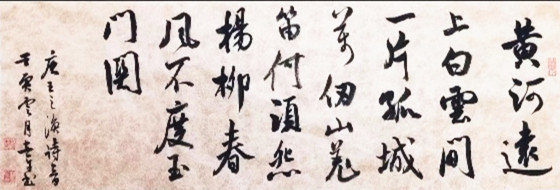 黃河遠
上白雲間
一片孤城
萬仞山羌
笛何須怨
楊柳春
風不度玉
門關
唐王之渙詩
壬寅月書